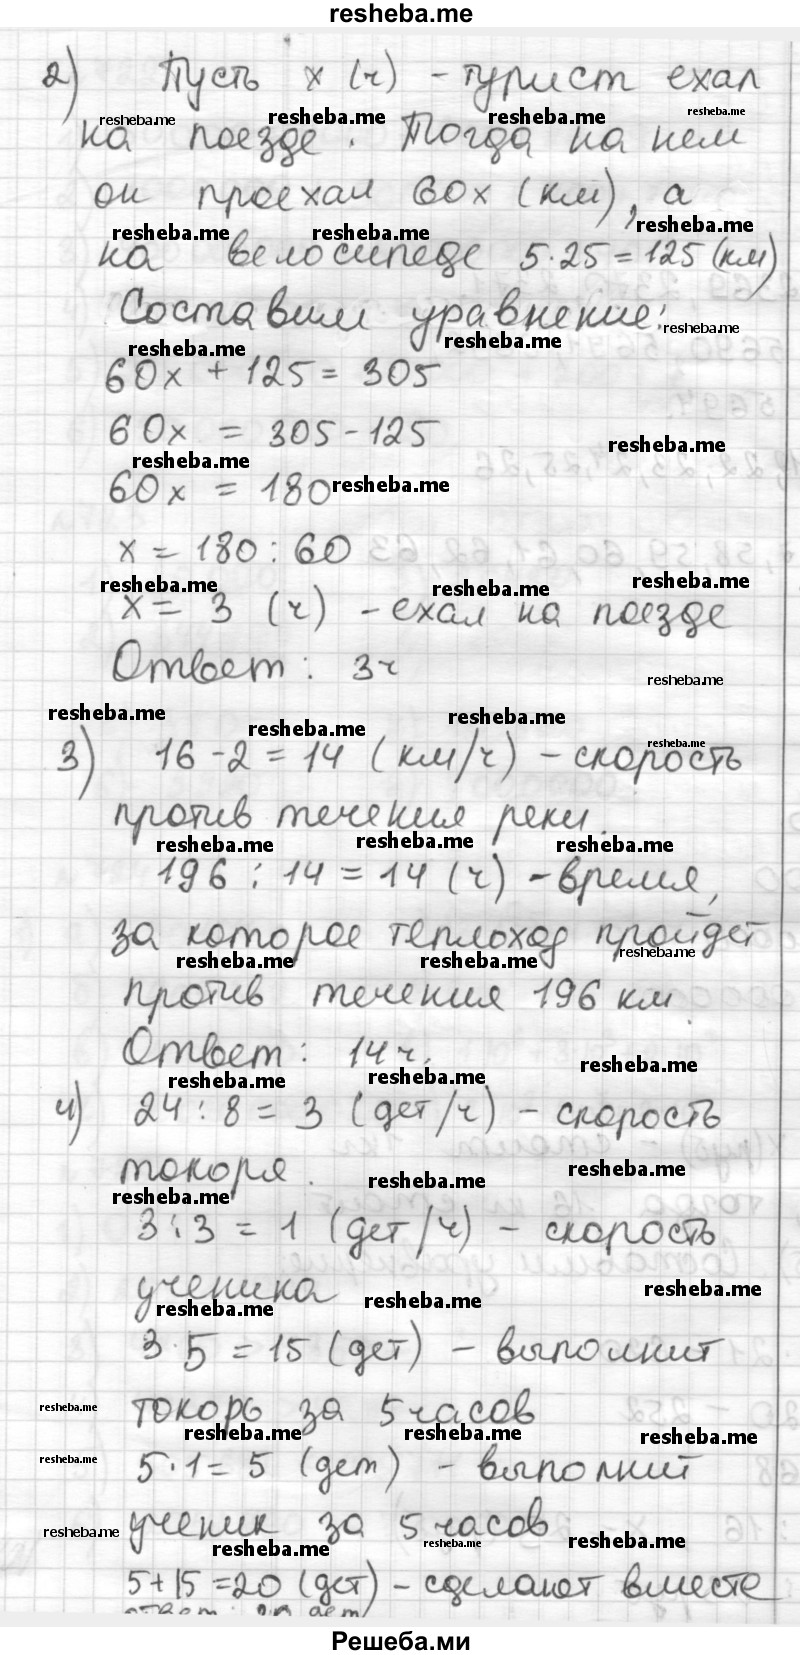 resheba.me
2) Пусть x (ч) - турист ехал
на поезде. Тогда на нем
он проехал 60x (км), а
на велосипеде 5·25=125 (км)
Составим уравнение:
60x + 125 = 305
60x = 305-125
60x = 180
x = 180 : 60
x = 3 (ч) - ехал на поезде
Ответ: 3ч
3) 16-2=14 (км/ч) - скорость
против течения реки.
196 : 14 = 14 (ч) - время,
за которое теплоход пройдет
против течения 196 км
Ответ: 14ч.
4) 24 : 8 = 3 (дет/ч) - скорость
токоря.
3 : 3 = 1 (дет/ч) - скорость
ученика
3·5 = 15 (дет) - выполнит
токорь за 5 часов
5·1 = 5 (дет) - выполнит
ученик за 5 часов
5+15=20 (дет) - сделают вместе
Ответ: 20 дет
Решеба.ми